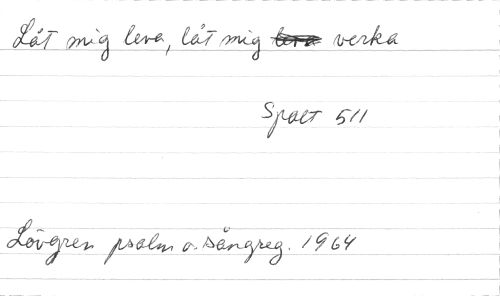 Låt mig leva, låt mig verka
Spalt 511
Lövgren psalm o. sångreg. 1964